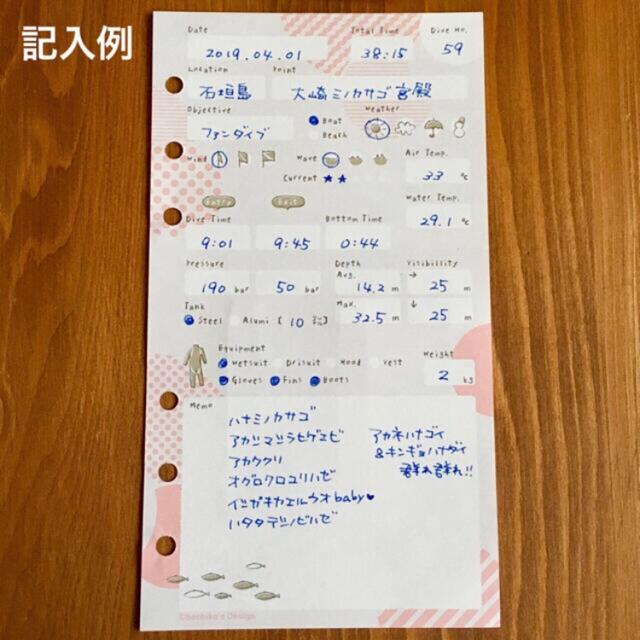 記入例
Date
Total Time
Dive No.
2019.04.01
38:15
59
Location
Point
石垣島
大崎ミノカサゴ宮殿
Objective
Boat
Weather
ファンダイブ
Beach
Wind
Wave
Air Temp.
Current
33 ℃
Entry
Exit
Water Temp.
Dive Time
Bottom Time
29.1 ℃
9:01
9:45
0:44
Pressure
Depth
Visibillity
Avg.
190 bar
50 bar
14.2 m
→ 25 m
Tank
Max.
Steel
Alumi
[ 10
32.5 m
↓ 25 m
Equipment
Weight
Wetsuit
Drisuit
Hood
Vest
2 kg
Gloves
Fins
Boots
Memo
ハナミノカサゴ
アカシマシラヒゲエビ
アカククリ
オグロクロユリハゼ
イシガキカエルウオbaby♥
ハタタテシノビハゼ
アカネハナゴイ
&キンギョハナダイ
群れ群れ!!
©hachika's Design